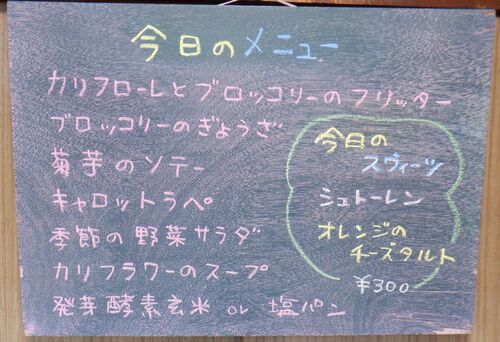 今日のメニュー
カリフローレとブロッコリーのフリッター
ブロッコリーのぎょうざ
菊芋のソテー
キャロットラペ
季節の野菜サラダ
カリフラワーのスープ
発芽酵素玄米 or 塩パン
今日の
スヴィーツ
シュトーレン
オレンジの
チーズタルト
¥300